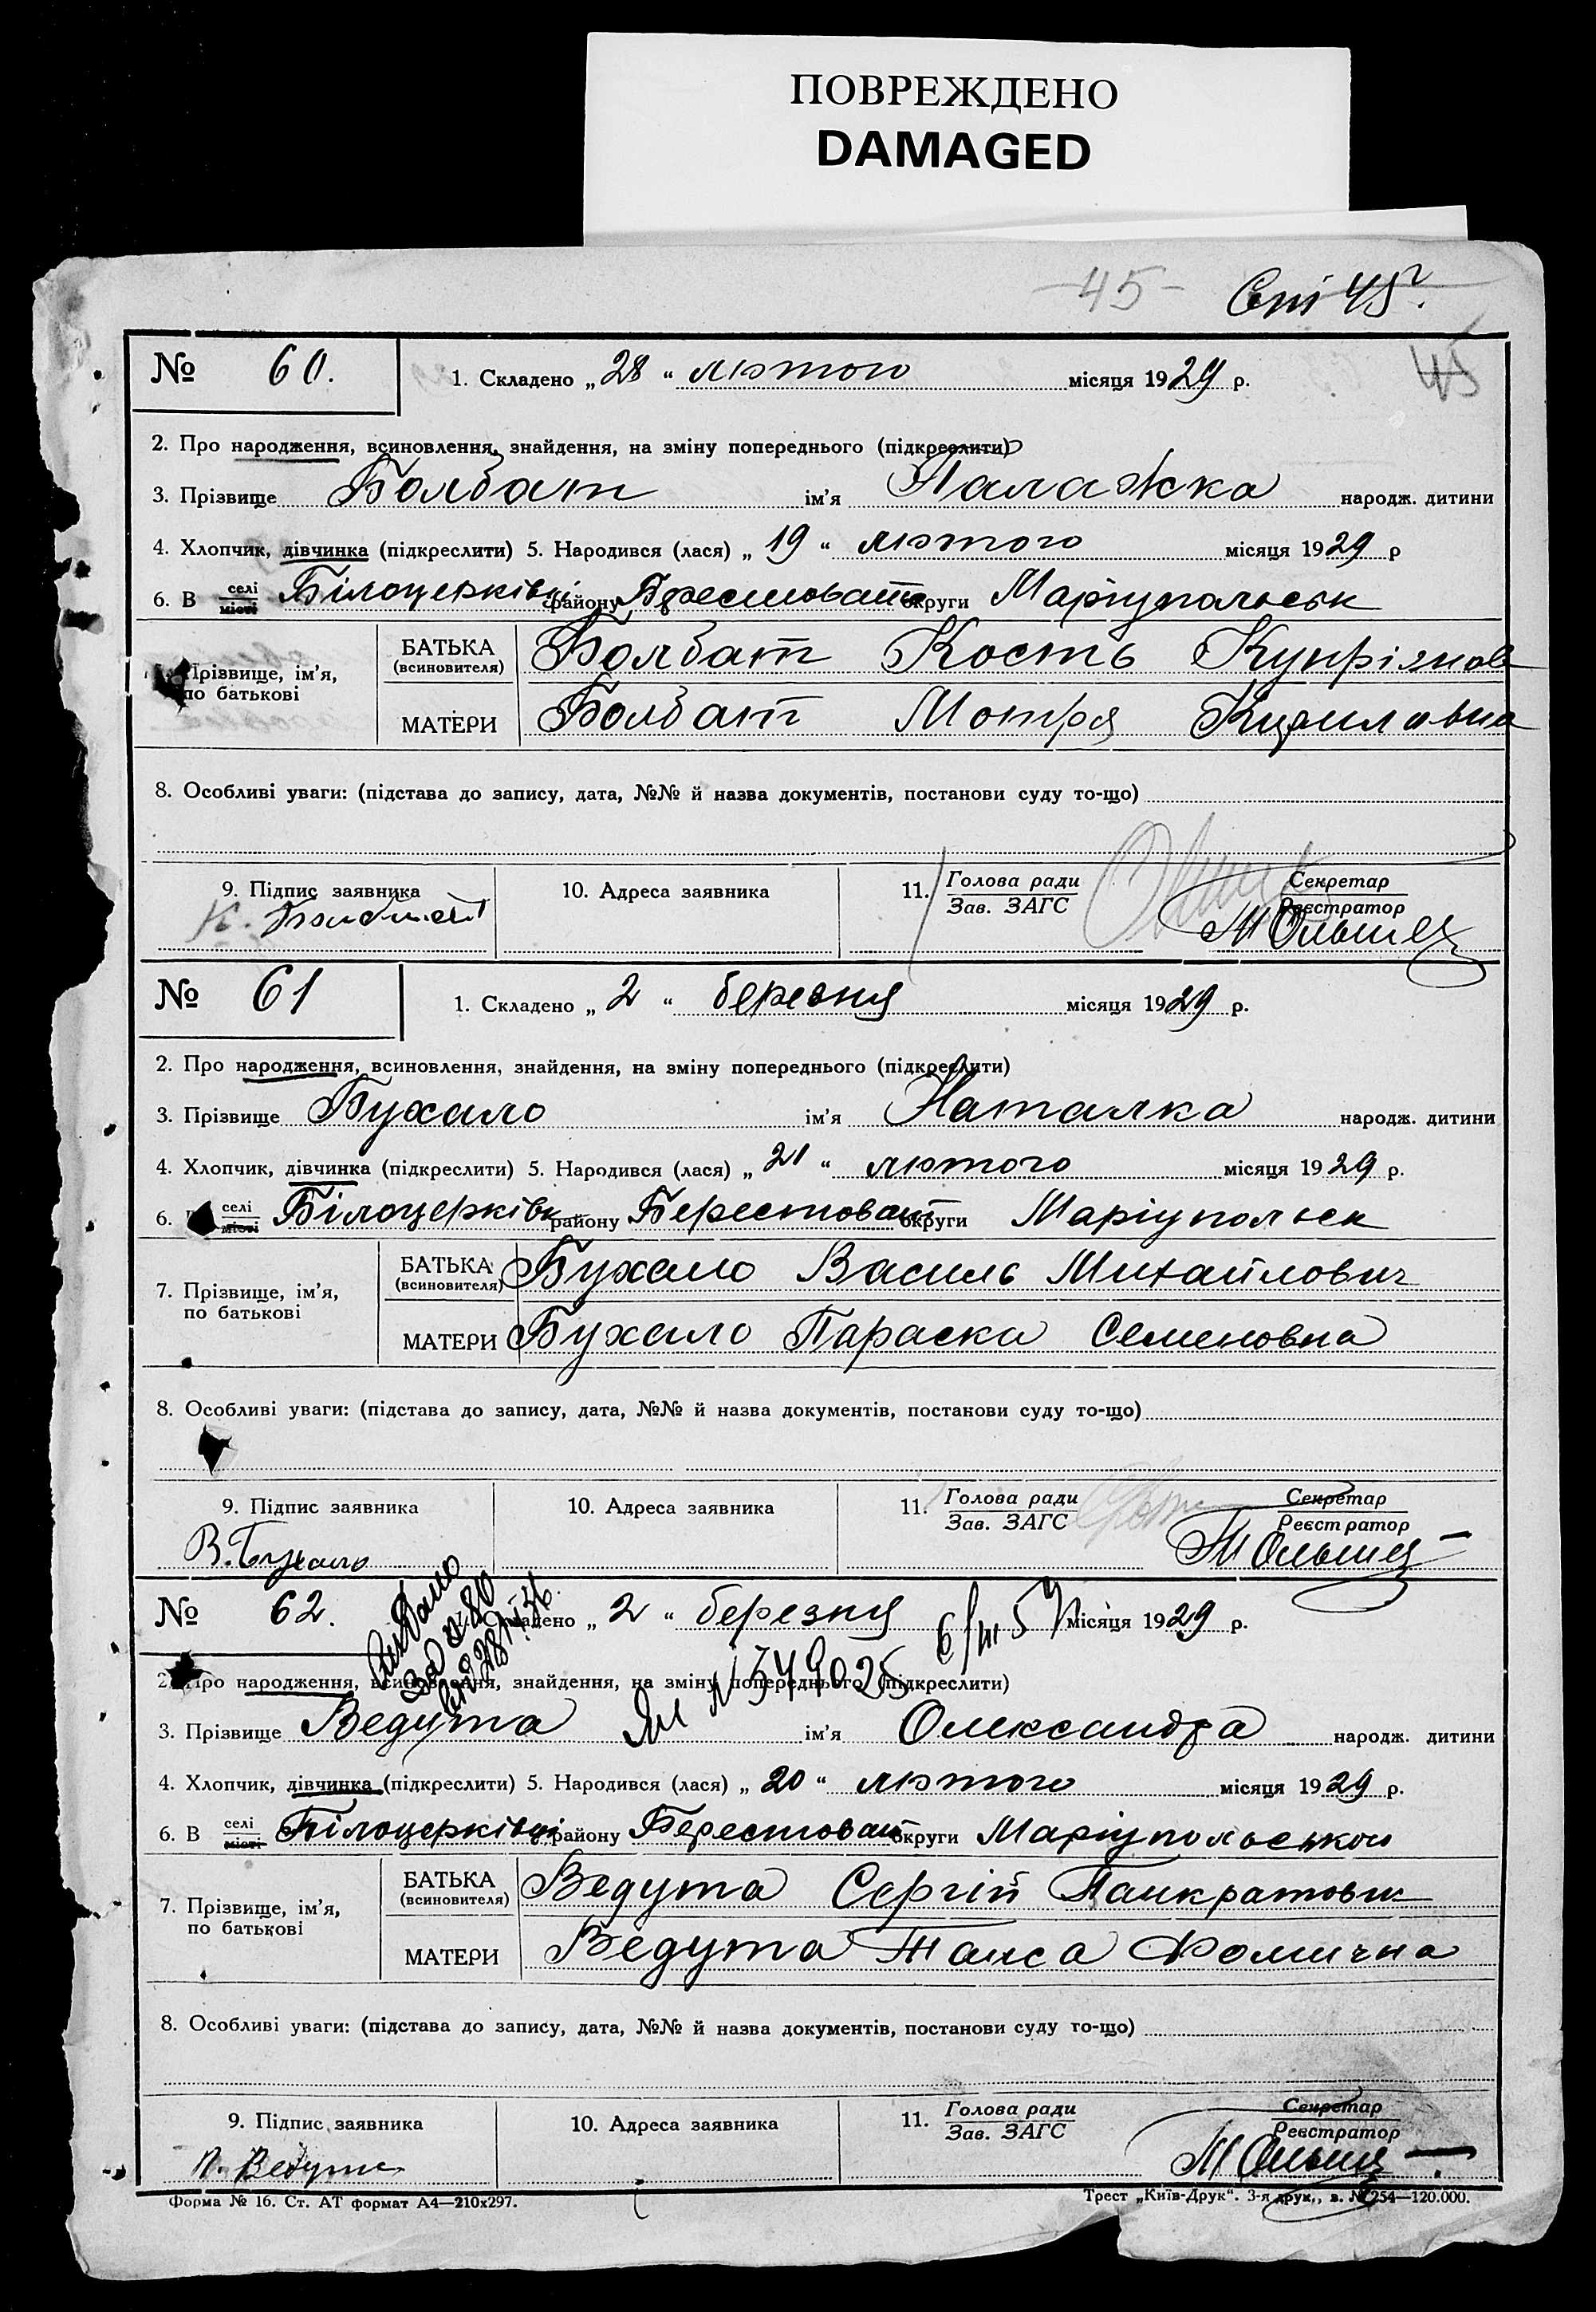 ПОВРЕЖДЕНО
DAMAGED
45
45
№ 60. 1. Складено „ 28 “ лютого місяця 1929 р.
2. Про народження, всиновлення, знайдення, на зміну попереднього (підкреслити)
3. Прізвище Болбат ім'я Палажка народж. дитини
4. Хлопчик, дівчинка (підкреслити) 5. Народився (лася) „ 19 “ лютого місяця 1929 р
6. В селі місті Білоцерківці району Берестоват округи Маріупольськ
Прізвище, ім'я, по батькові БАТЬКА (всиновителя) Болбат Кость Купріянов
МАТЕРИ Болбат Мотря Кирилавна
8. Особливі уваги: (підстава до запису, дата, №№ й назва документів, постанови суду то-що)
9. Підпис заявника 10. Адреса заявника 11. Голова ради Зав. ЗАГС Секретар Реєстратор
К. Болбат
№ 61 1. Складено „ 2 “ березня місяця 1929 р.
2. Про народження, всиновлення, знайдення, на зміну попереднього (підкреслити)
3. Прізвище Бухало ім'я Наталка народж. дитини
4. Хлопчик, дівчинка (підкреслити) 5. Народився (лася) „ 21 “ лютого місяця 1929 р.
6. селі місті Білоцерківк району Берестоват округи Маріупольск
7. Прізвище, ім'я, по батькові БАТЬКА (всиновителя) Бухало Василь Михайлович
МАТЕРИ Бухало Параска Семеновна
8. Особливі уваги: (підстава до запису, дата, №№ й назва документів, постанови суду то-що)
9. Підпис заявника 10. Адреса заявника 11. Голова ради Зав. ЗАГС Секретар Реєстратор
В. Бухало
№ 62. Складено „ 2 “ березня місяця 1929 р.
2. Про народження, всиновлення, знайдення, на зміну попереднього (підкреслити)
N 579025
3. Прізвище Ведута ім'я Олександра народж. дитини
4. Хлопчик, дівчинка (підкреслити) 5. Народився (лася) „ 20 “ лютого місяця 1929 р.
6. В селі місті Білоцерківці району Берестоват округи Маріупольської
7. Прізвище, ім'я, по батькові БАТЬКА (всиновителя) Ведута Сергій Панкратович
МАТЕРИ Ведута Таиса Фомична
8. Особливі уваги: (підстава до запису, дата, №№ й назва документів, постанови суду то-що)
9. Підпис заявника 10. Адреса заявника 11. Голова ради Зав. ЗАГС Секретар Реєстратор
Ведута
Форма № 16. Ст. АТ формат А4—210х297. Трест „Київ-Друк“. 3-я друк., з. № 254—120.000.